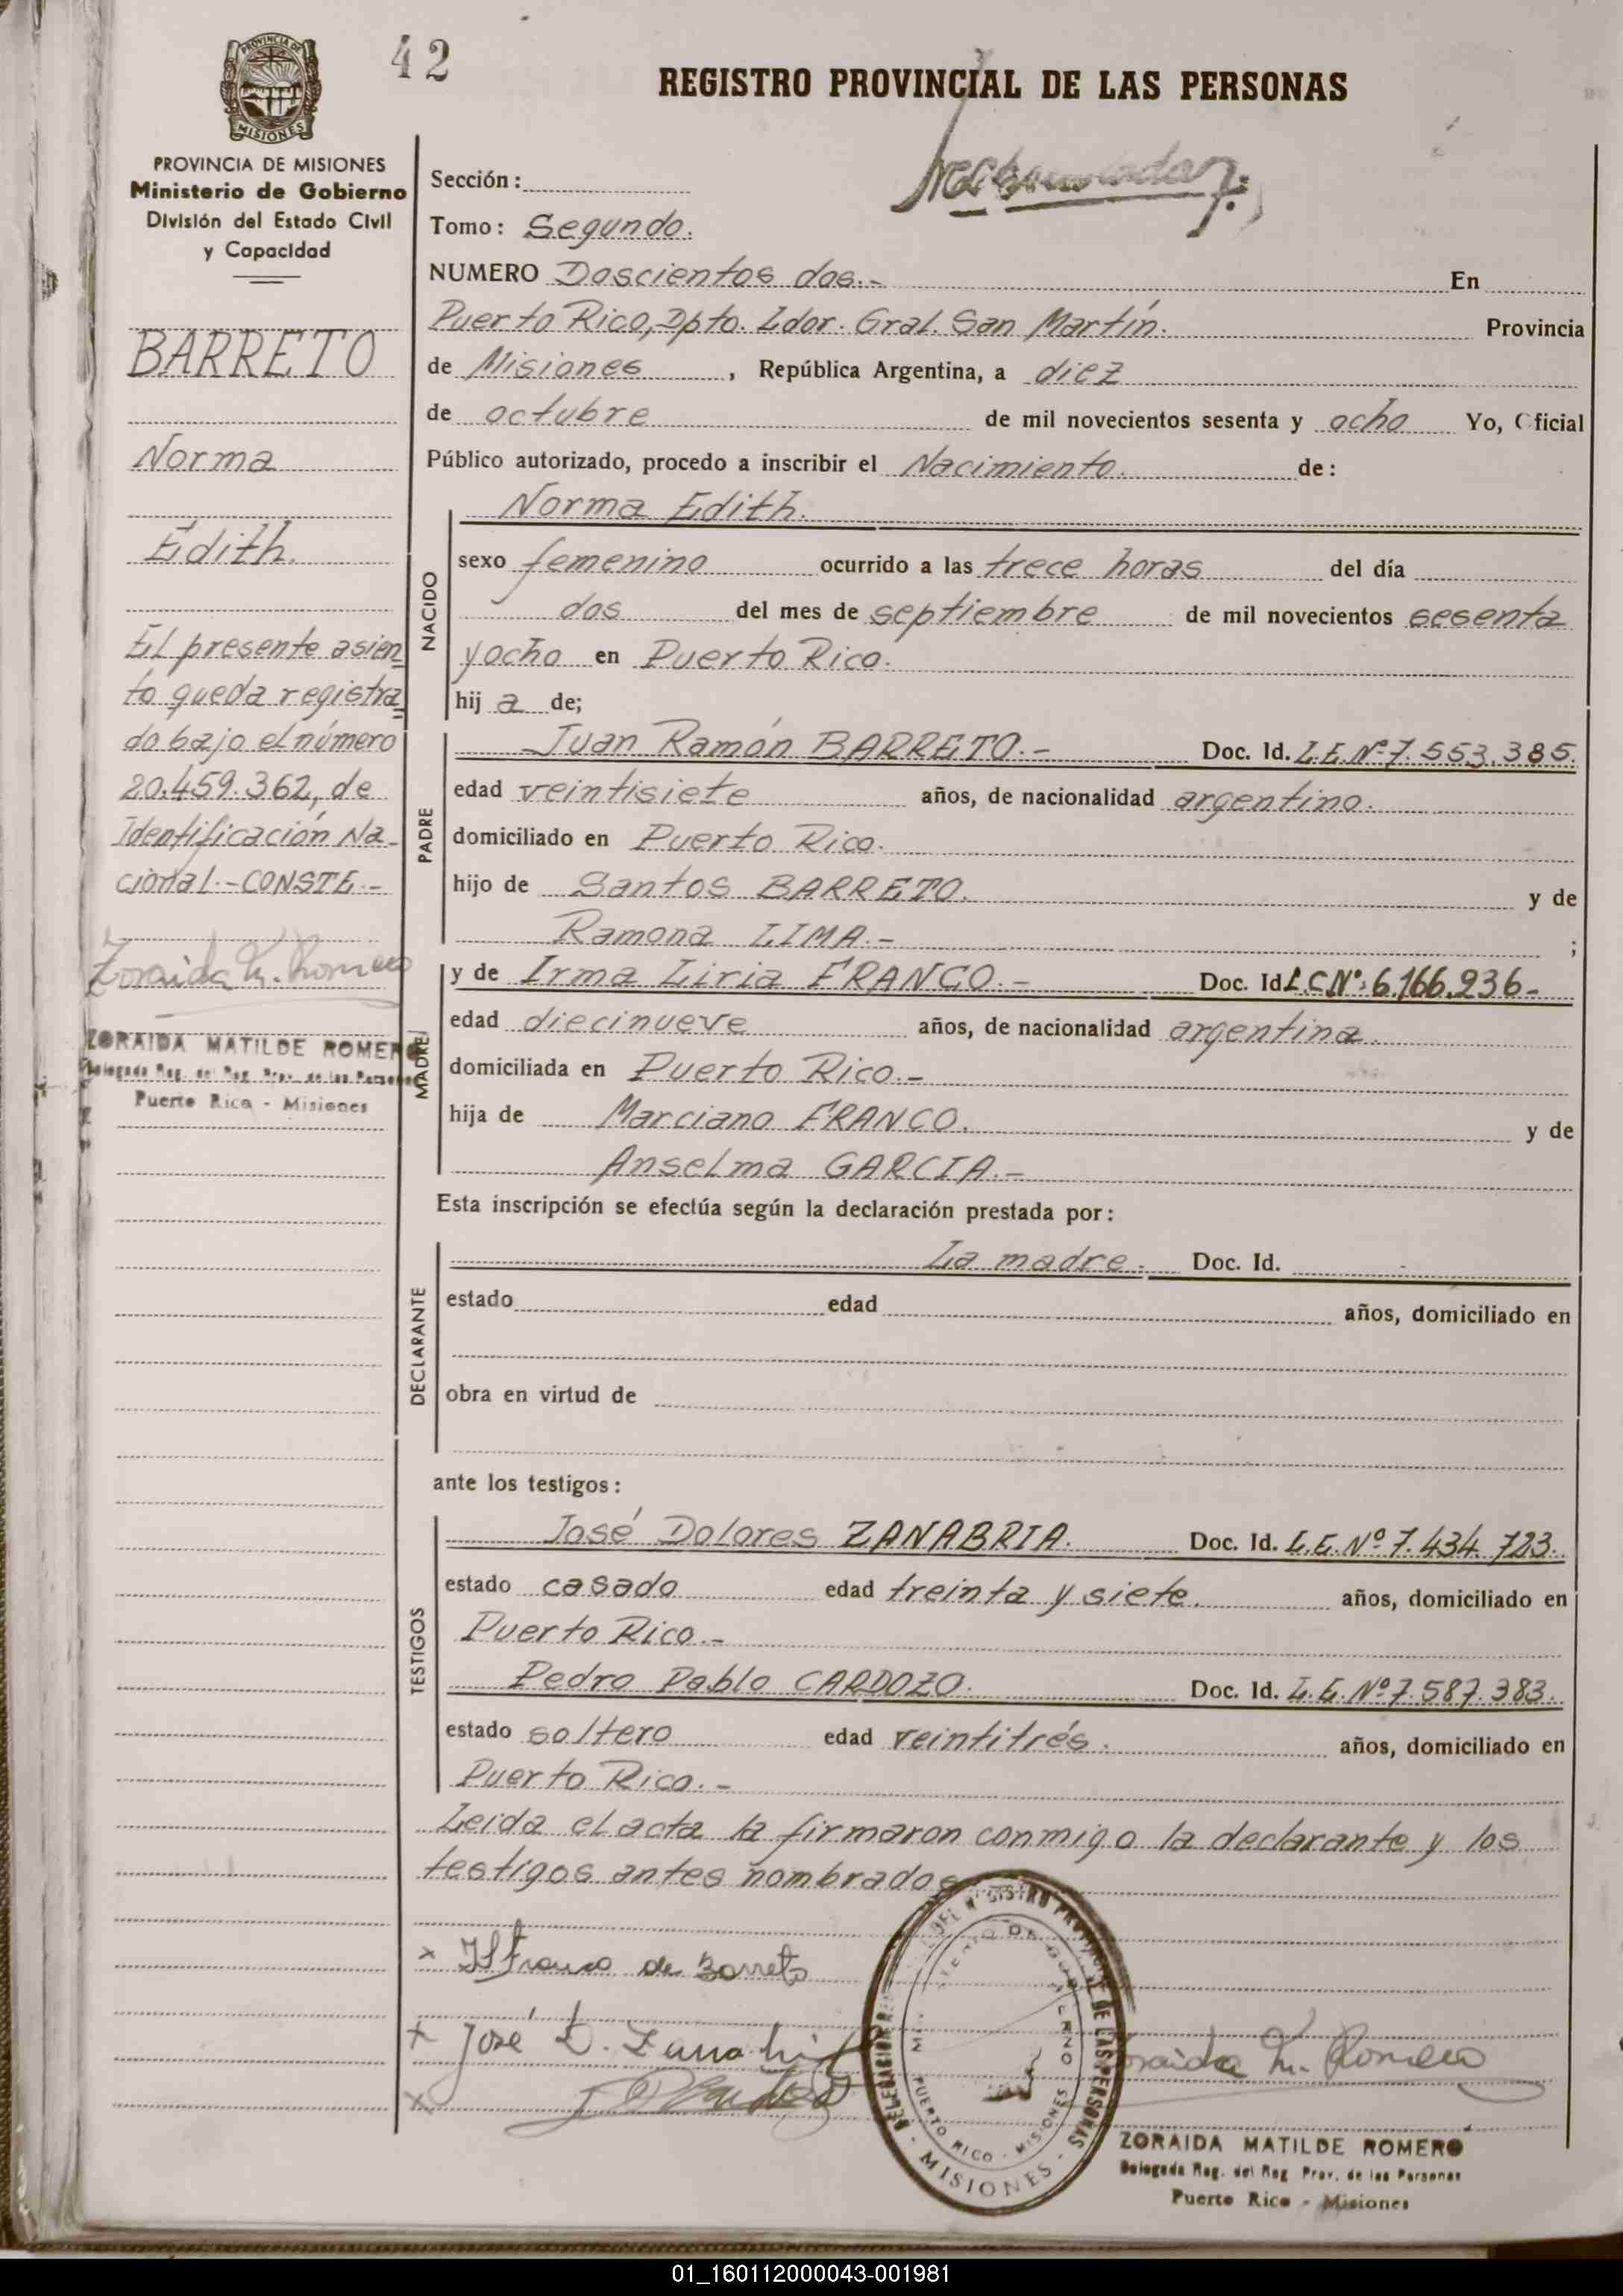 42
REGISTRO PROVINCIAL DE LAS PERSONAS
PROVINCIA DE
MISIONES
PROVINCIA DE MISIONES
Ministerio de Gobierno
División del Estado Civil
y Capacidad
BARRETO
Norma
Edith.
El presente asien
to queda registra
do bajo el número
20.459.362, de
Identificación Na-
cional.-CONSTE.-
Zoraida M. Romero
ZORAIDA MATILDE ROMERO
Delegada Reg. del Reg. Prov. de las Personas
Puerto Rico - Misiones
Sección:
Tomo: Segundo.
NUMERO Doscientos dos.- En
Puerto Rico, Dpto. Ldor. Gral. San Martín. Provincia
de Misiones, República Argentina, a diez
de octubre de mil novecientos sesenta y ocho Yo, Oficial
Público autorizado, procedo a inscribir el Nacimiento. de:
Norma Edith.
NACIDO
sexo femenino ocurrido a las trece horas del día
dos del mes de septiembre de mil novecientos sesenta
y ocho en Puerto Rico.
hij a de;
PADRE
Juan Ramón BARRETO.- Doc. Id. L.E.Nº7.553.385.
edad veintisiete años, de nacionalidad argentino.
domiciliado en Puerto Rico.
hijo de Santos BARRETO. y de
Ramona LIMA.- ;
MADRE
y de Irma Liria FRANCO.- Doc. Id L.C.Nº: 6.166.936-
edad diecinueve años, de nacionalidad argentina.
domiciliada en Puerto Rico.-
hija de Marciano FRANCO. y de
Anselma GARCIA.-
Esta inscripción se efectúa según la declaración prestada por:
DECLARANTE
La madre. Doc. Id.
estado edad años, domiciliado en
obra en virtud de
ante los testigos:
TESTIGOS
José Dolores ZANABRIA. Doc. Id. L.E.Nº7.434.723.
estado casado edad treinta y siete. años, domiciliado en
Puerto Rico.-
Pedro Pablo CARDOZO. Doc. Id. L.E.Nº7.587.383.
estado soltero edad veintitrés. años, domiciliado en
Puerto Rico.-
Leida el acta la firmaron conmigo la declarante y los
testigos antes nombrados
x I L Franco de Barreto
x José D. Zanabria
x
DELEGACION DEL REGISTRO PROVINCIAL DE LAS PERSONAS
PUERTO RICO - MISIONES
- MISIONES -
Zoraida M. Romero
ZORAIDA MATILDE ROMERO
Delegada Reg. del Reg. Prov. de las Personas
Puerto Rico - Misiones
01_160112000043-001981